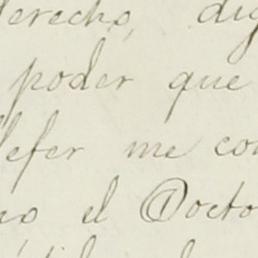 derecho, dig
poder que
defer me con
no el Docto